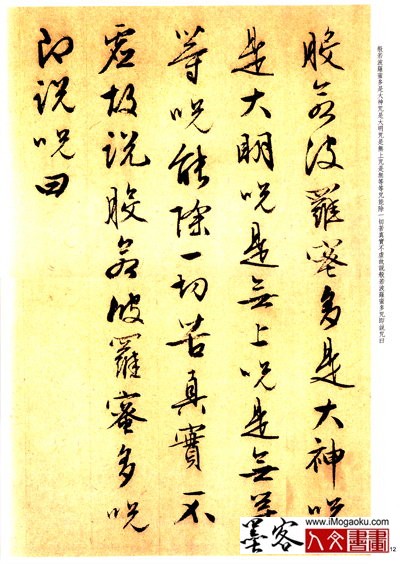 般若波羅蜜多是大神咒是大明咒是無上咒是無等等咒能除一切苦真實不虛故說般若波羅蜜多咒即說咒曰
般若波羅蜜多是大神呪
是大明呪是無上呪是無等
等呪能除一切苦真實不
虛故説般若波羅蜜多呪
即説呪曰
墨客
www.iMogaoku.com
人文書畫
12